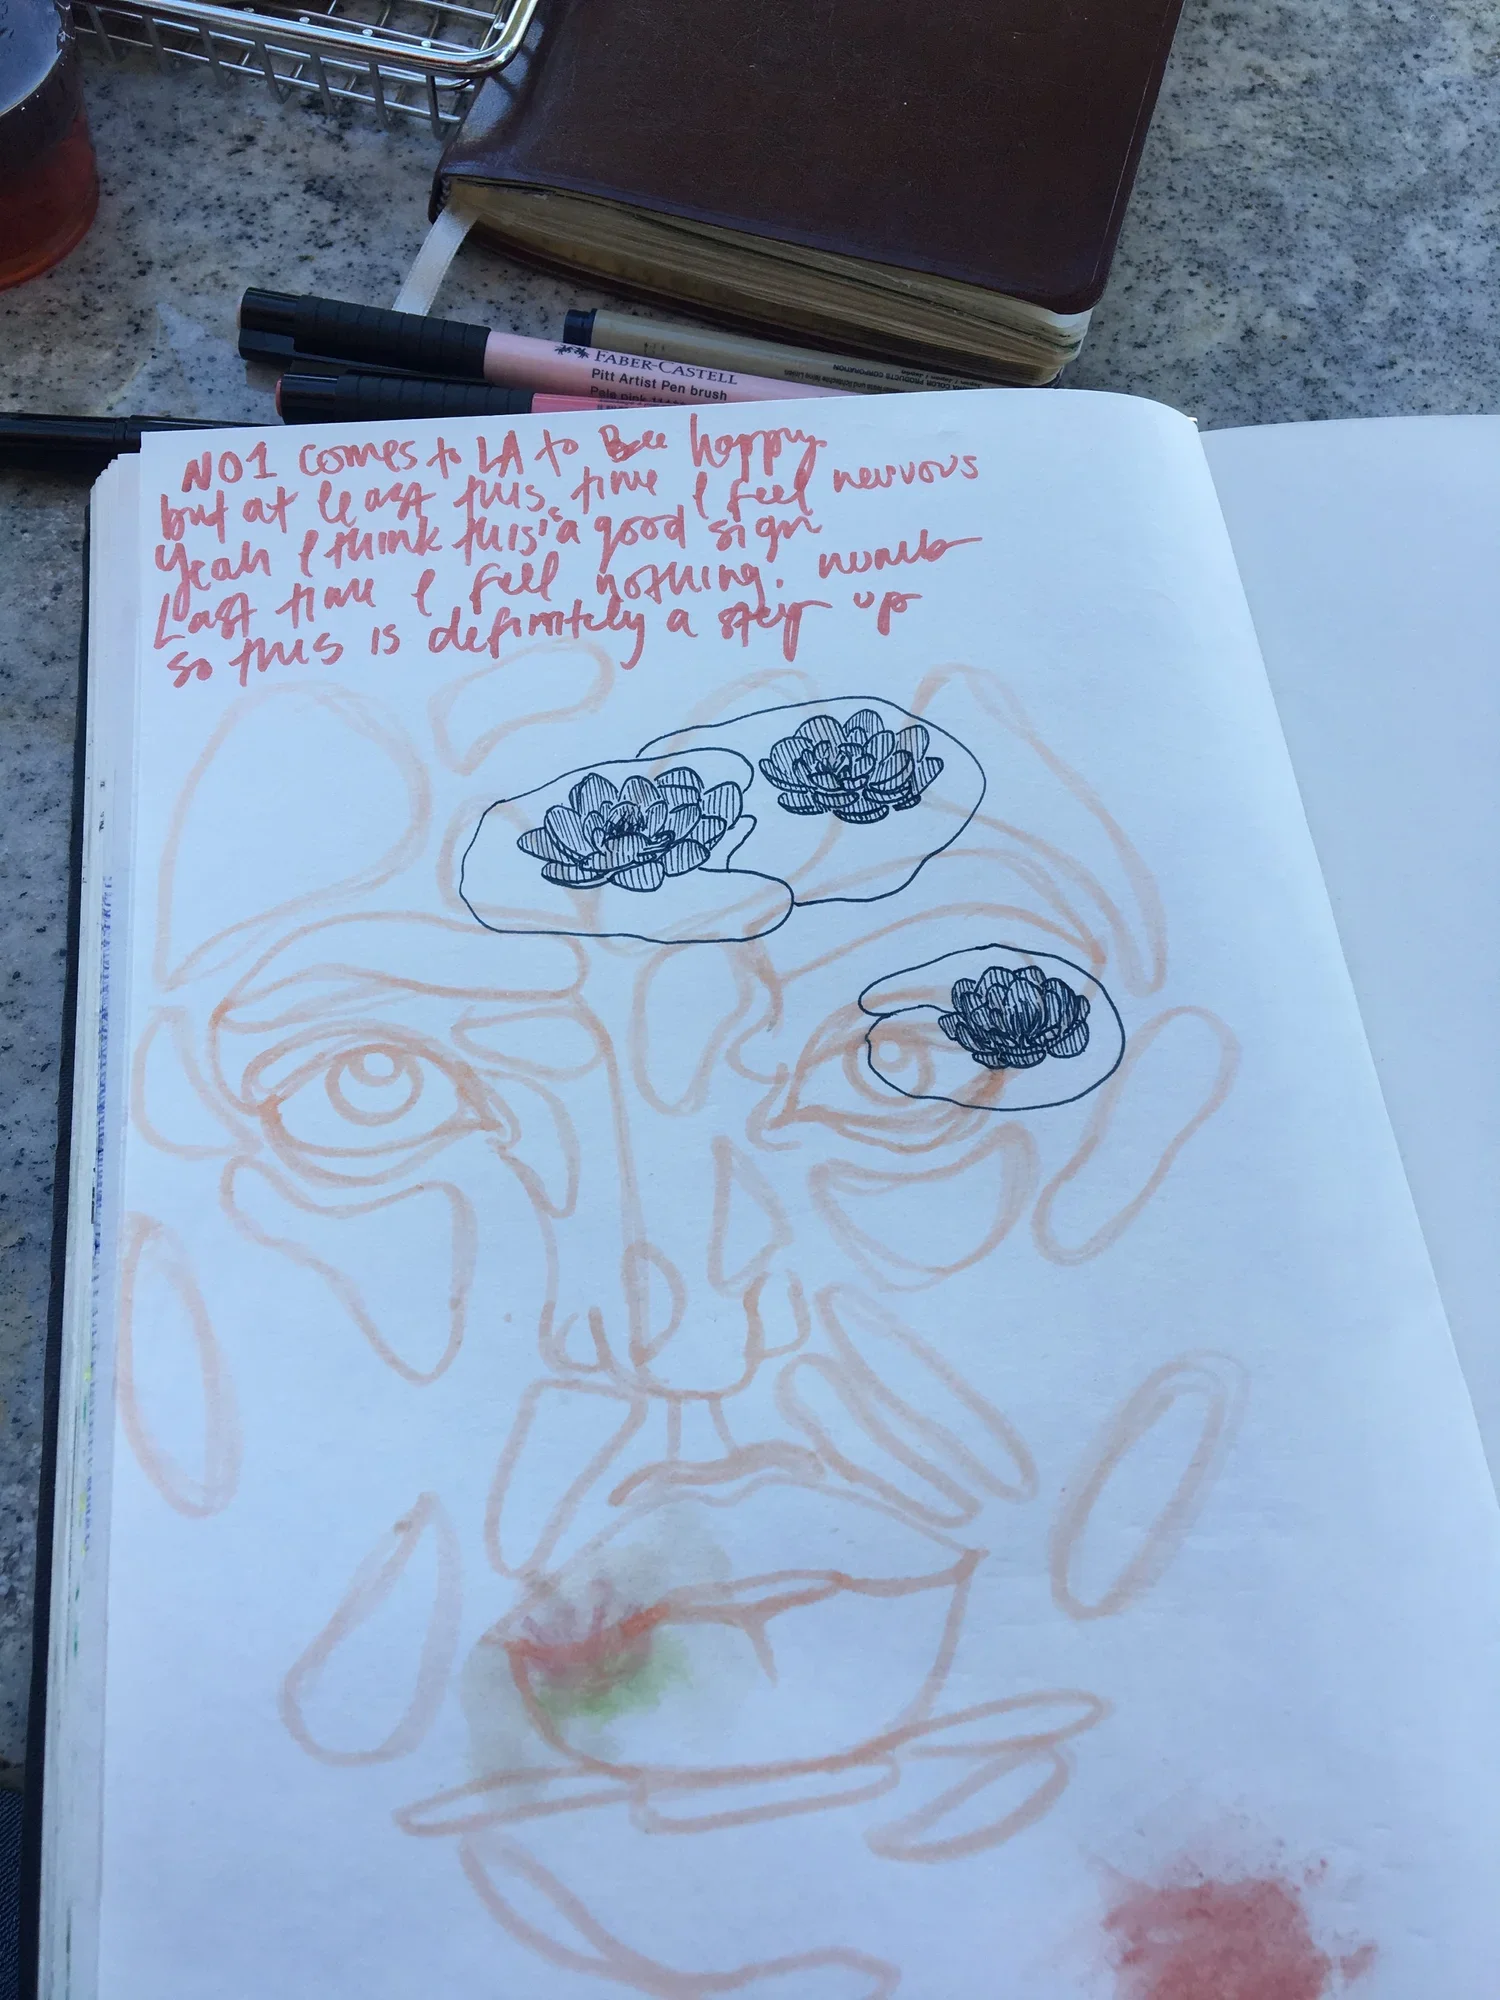 FABER-CASTELL
Pitt Artist Pen brush
Pale pink
COLOR PRODUCTS CORPORATION
NO1 comes to LA to Bee happy.
but at least this time I feel nervous
yeah I think this is a good sign
Last time I feel nothing. numb
so this is definitely a step up